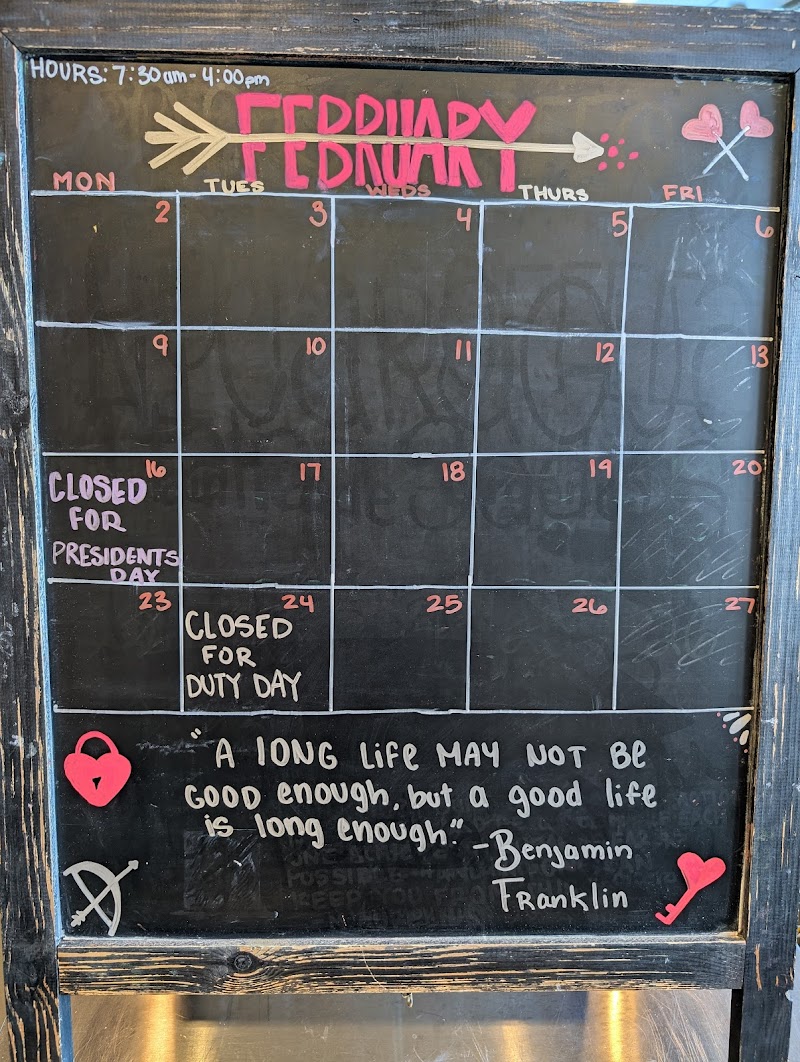 HOURS: 7:30am - 4:00pm
FEBRUARY
MON TUES WEDS THURS FRI
2 3 4 5 6
9 10 11 12 13
16 17 18 19 20
CLOSED
FOR
PRESIDENTS
DAY
23 24 25 26 27
CLOSED
FOR
DUTY DAY
"A lONG LiFe MAY NOT Be
GOOD enough, but a good life
is long enough."
-Benjamin
Franklin